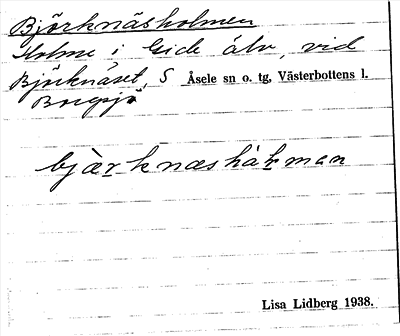 Björknäsholmen
Holme i Gide älv, vid
Björknäset, S Åsele sn o. tg, Västerbottens l.
Borgsjö
bjærknæshåļman
Lisa Lidberg 1938.